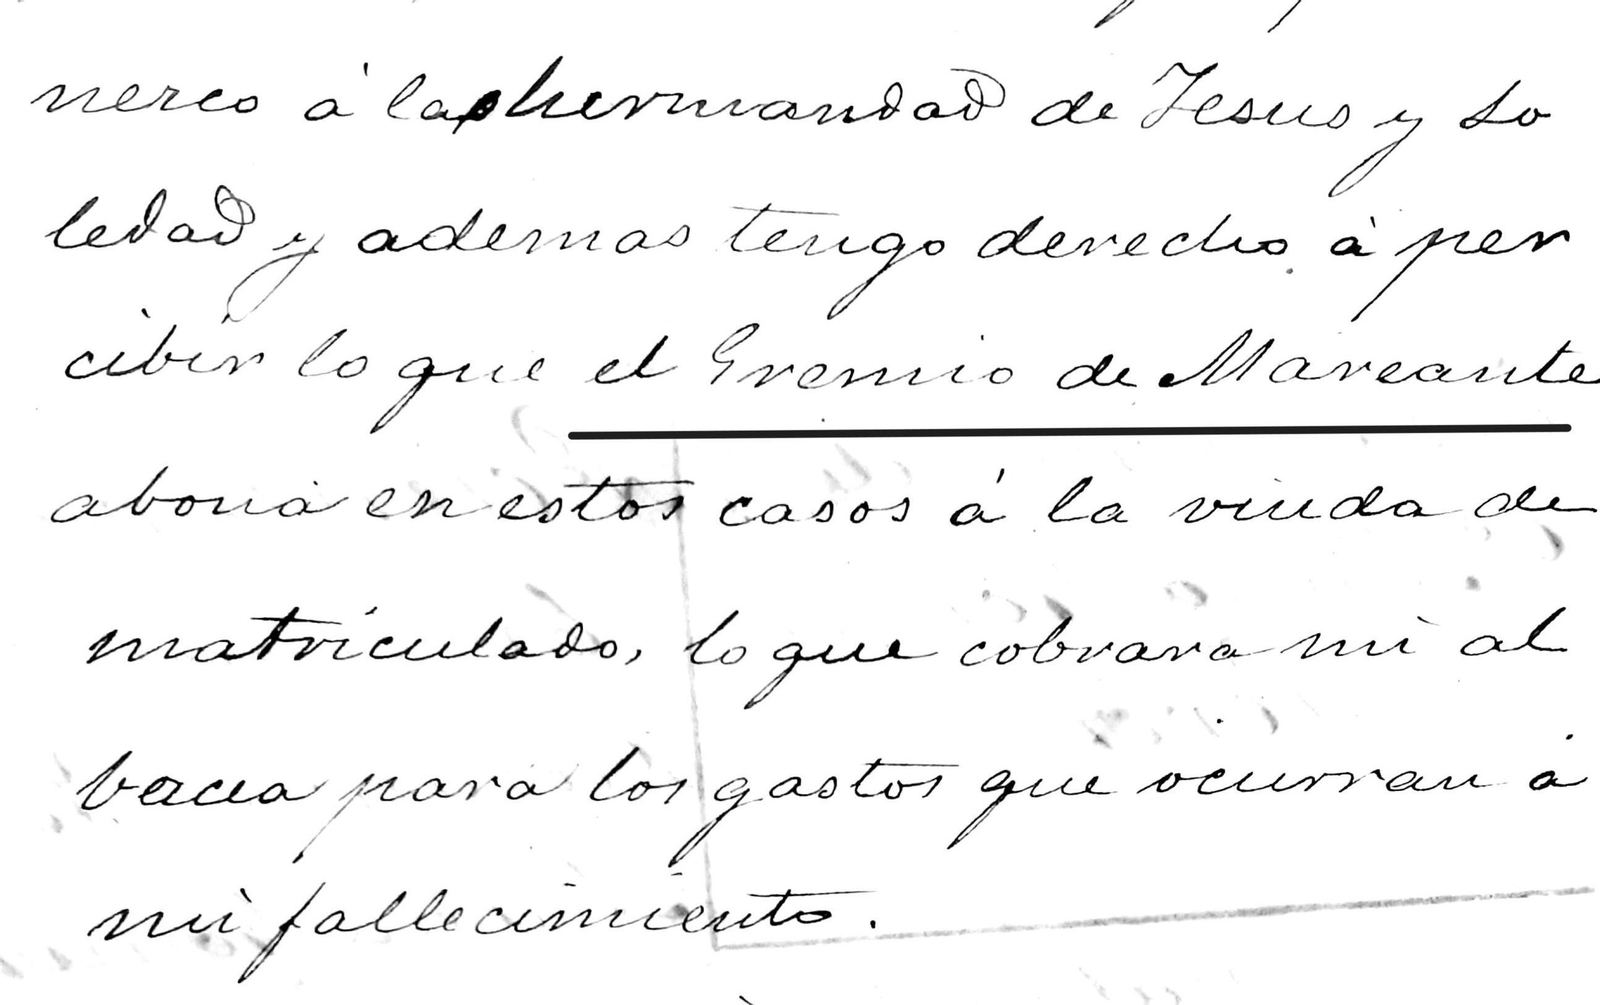 nerco á la hermandad de Jesus y So
ledad y ademas tengo derecho á per
cibir lo que el Gremio de Mareante
abona en estos casos á la viuda de
matriculado, lo que cobrara mi al
bacea para los gastos que ocurran á
mi fallecimiento.